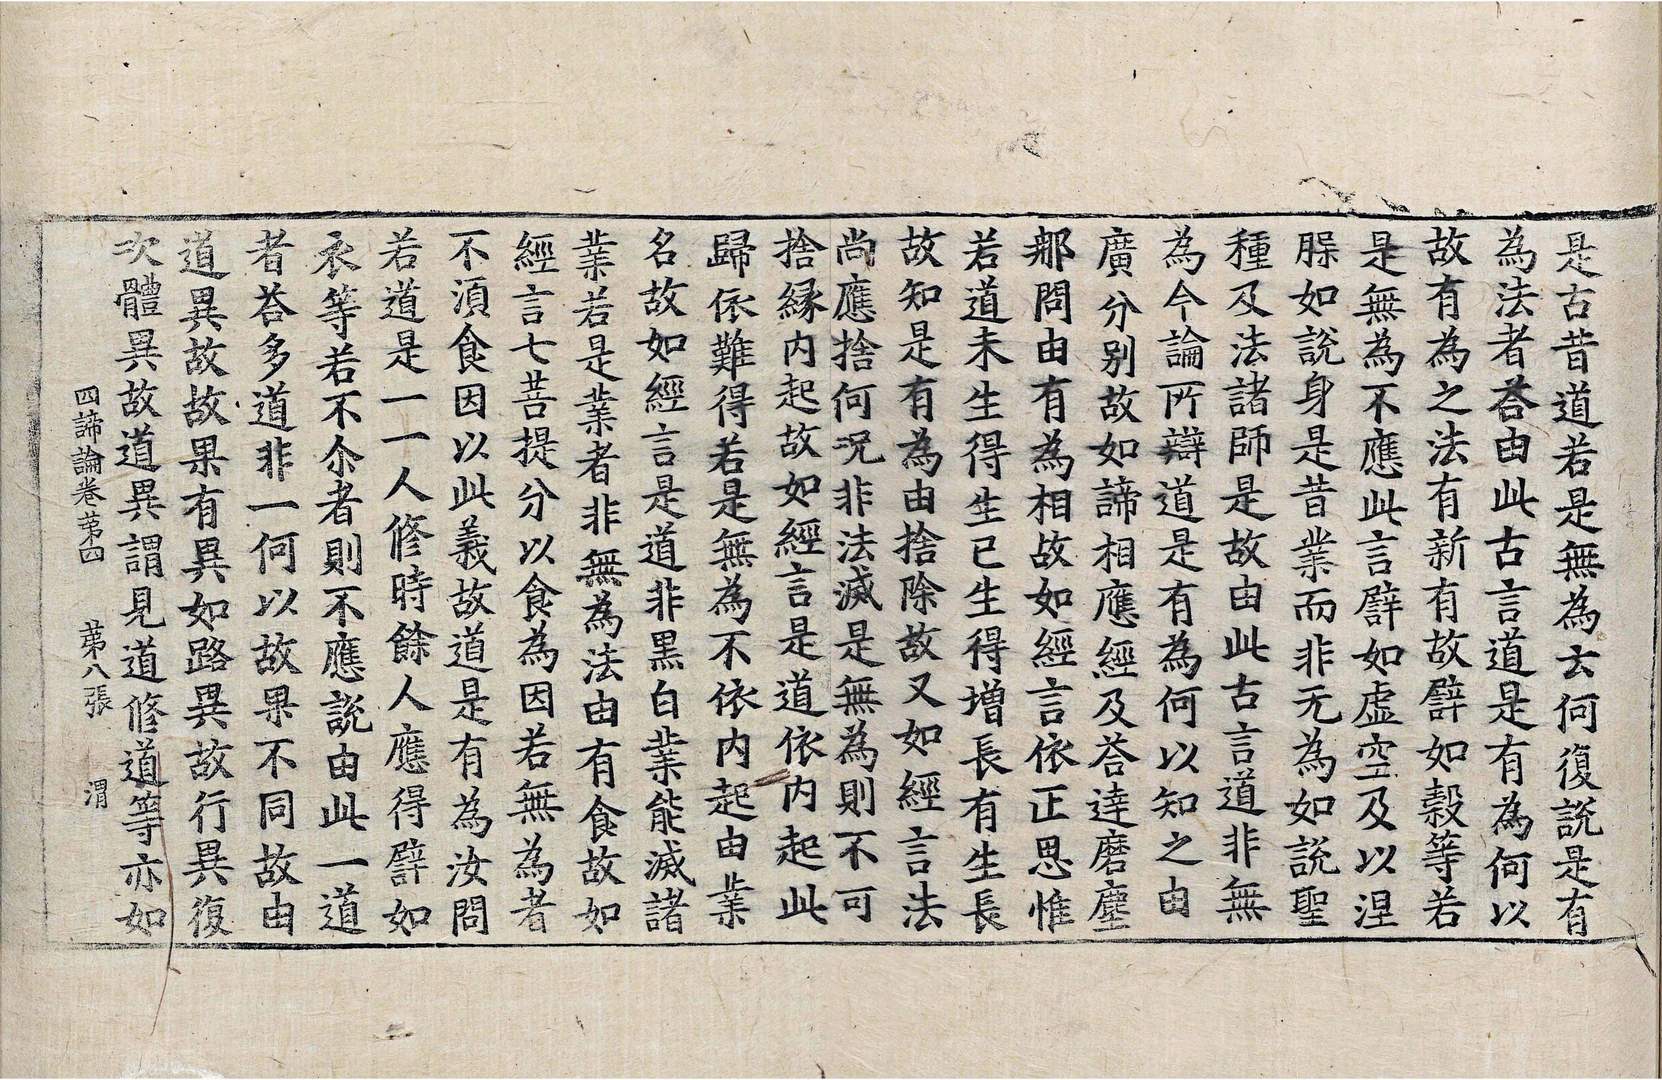 是古昔道若是無為去何復說是有
為法者荅由此古言道是有為何以
故有為之法有新有故譬如穀等若
是無為不應此言譬如虛空及以涅
脵如說身是昔業而非无為如說聖
種及法諸師是故由此古言道非無
為今論所辯道是有為何以知之由
廣分別故如諦相應經及荅達磨塵
那問由有為相故如經言依正思惟
若道未生得生已生得增長有生長
故知是有為由捨除故又如經言法
尚應捨何况非法滅是無為則不可
捨縁内起故如經言是道依内起此
歸依難得若是無為不依内起由業
名故如經言是道非黑白業能滅諸
業若是業者非無為法由有食故如
經言七菩提分以食為因若無為者
不湏食因以此義故道是有為汝問
若道是一一人修時餘人應得譬如
衣等若不尒者則不應說由此一道
者荅多道非一何以故果不同故由
道異故故果有異如路異故行異復
次體異故道異謂見道修道等亦如
四諦論卷苐四　苐八張　渭